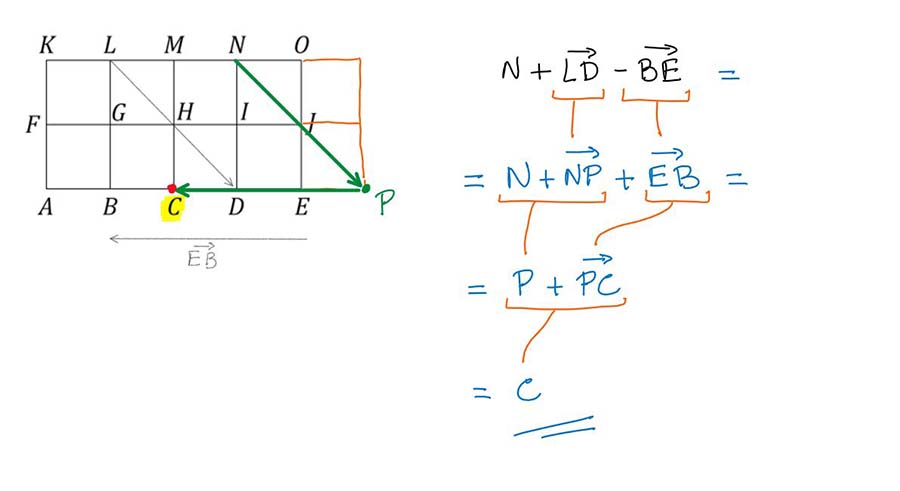 K L M N O
F G H I J
A B C D E P
EB
N + LD - BE =
= N + NP + EB =
= P + PC
= C